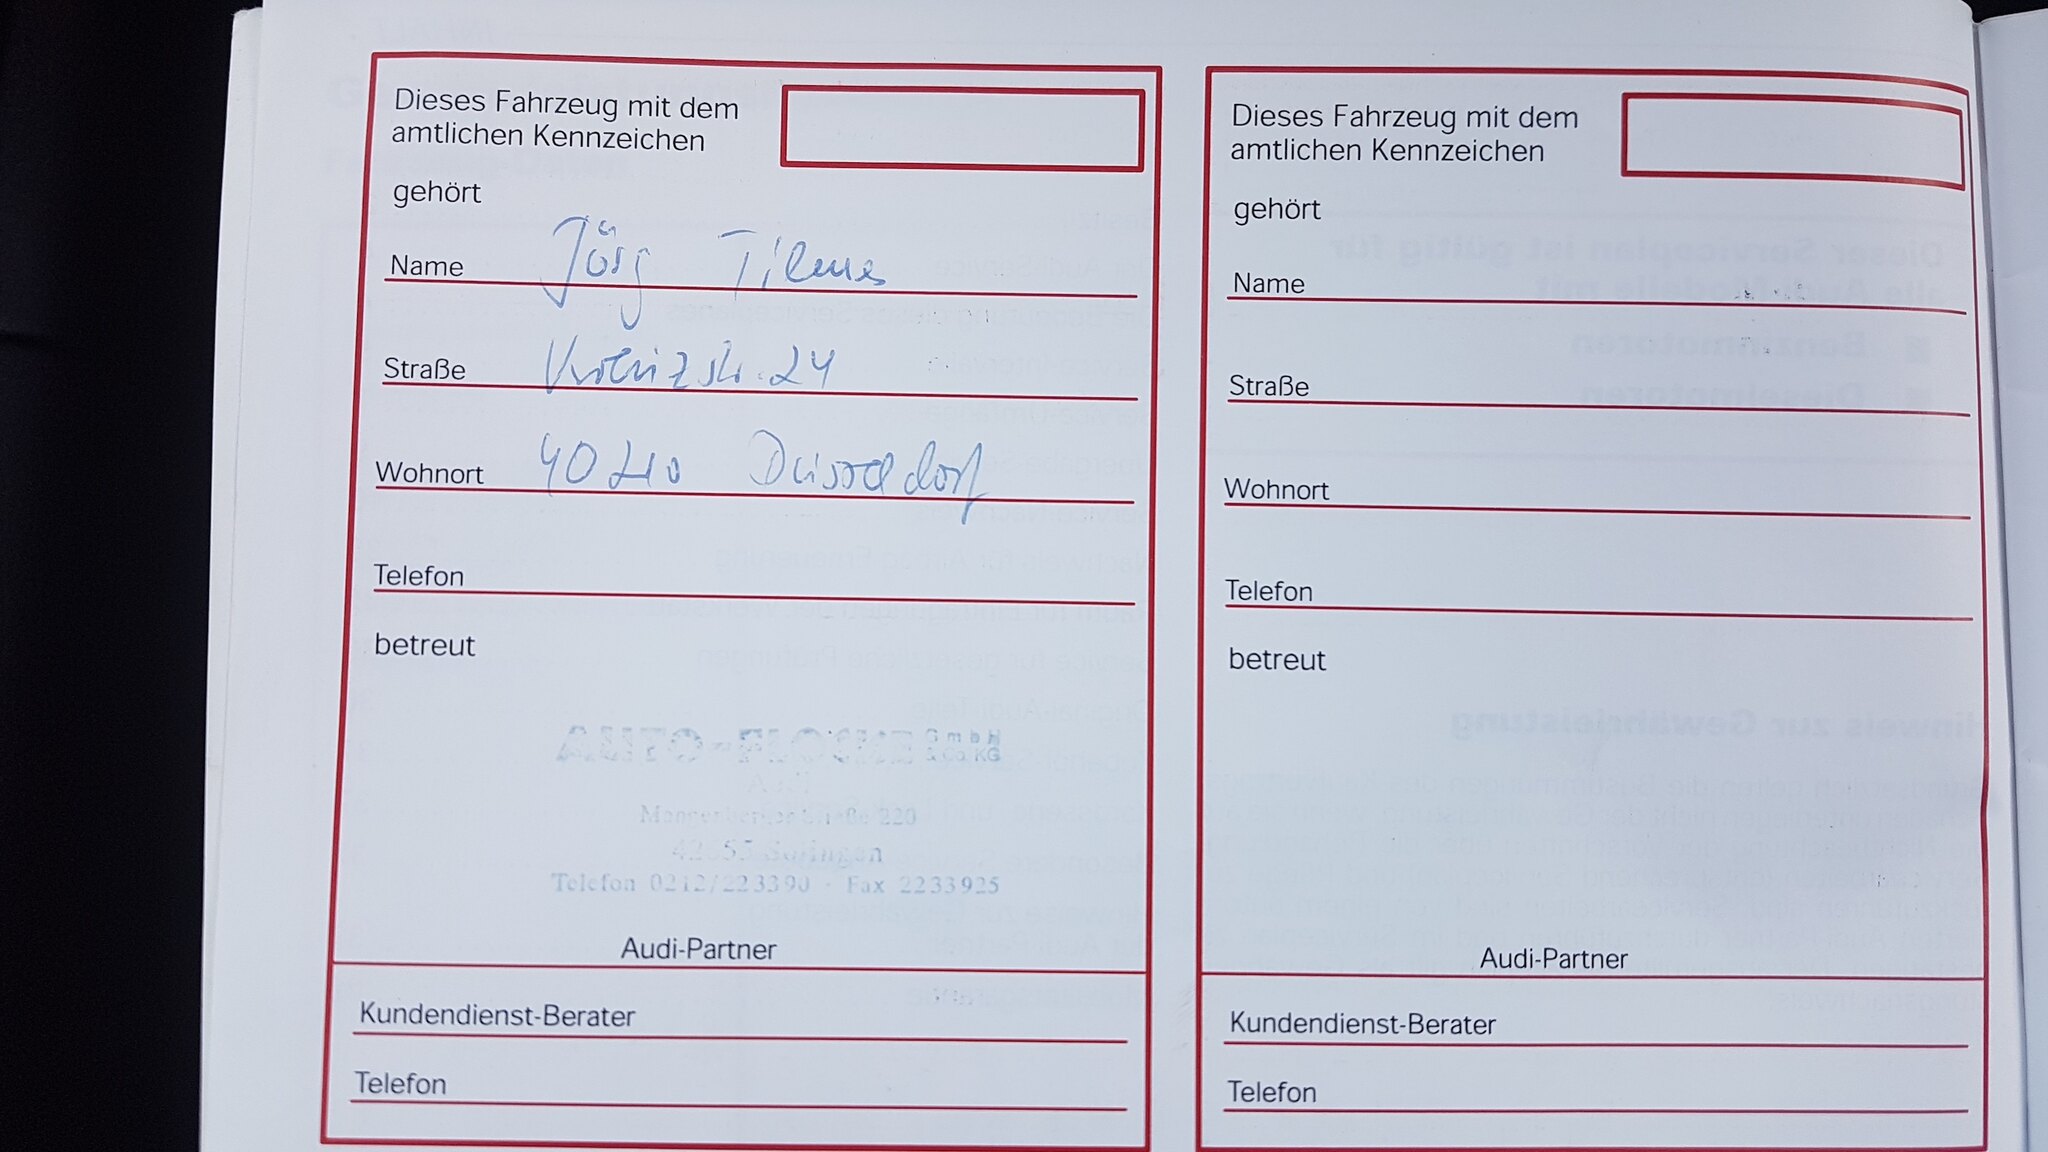 Dieses Fahrzeug mit dem
amtlichen Kennzeichen
gehört
Name Jörg
Straße 24
Wohnort 40210 Düsseldorf
Telefon
betreut
AUTO- GmbH
& Co. KG
Audi
220
42655 Solingen
Telefon 0212/223390 · Fax 2233925
Audi-Partner
Kundendienst-Berater
Telefon
Dieses Fahrzeug mit dem
amtlichen Kennzeichen
gehört
Name
Straße
Wohnort
Telefon
betreut
Audi-Partner
Kundendienst-Berater
Telefon